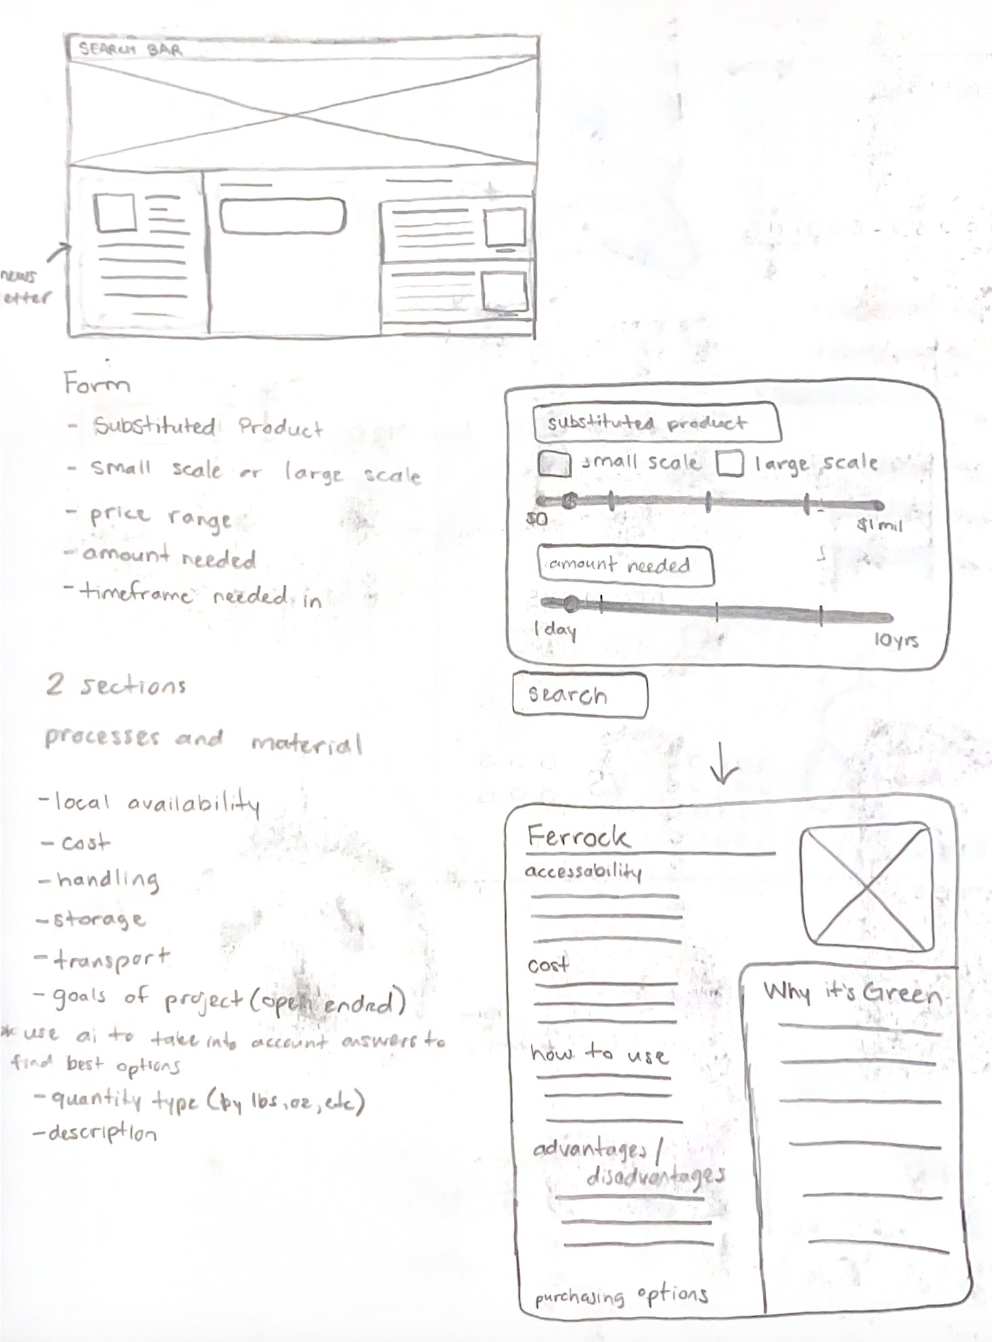 SEARCH BAR
news
etter
Form
- Substituted Product
- small scale or large scale
- price range
- amount needed
- timeframe needed in
substituted product
small scale large scale
$0 $1 mil
amount needed
1 day 10 yrs
search
2 sections
processes and material
- local availability
- cost
- handling
- storage
- transport
- goals of project (open ended)
* use ai to take into account answers to
find best options
- quantity type (by lbs, oz, etc)
- description
Ferrock
accessability
cost
how to use
advantages /
disadvantages
purchasing options
Why it's Green